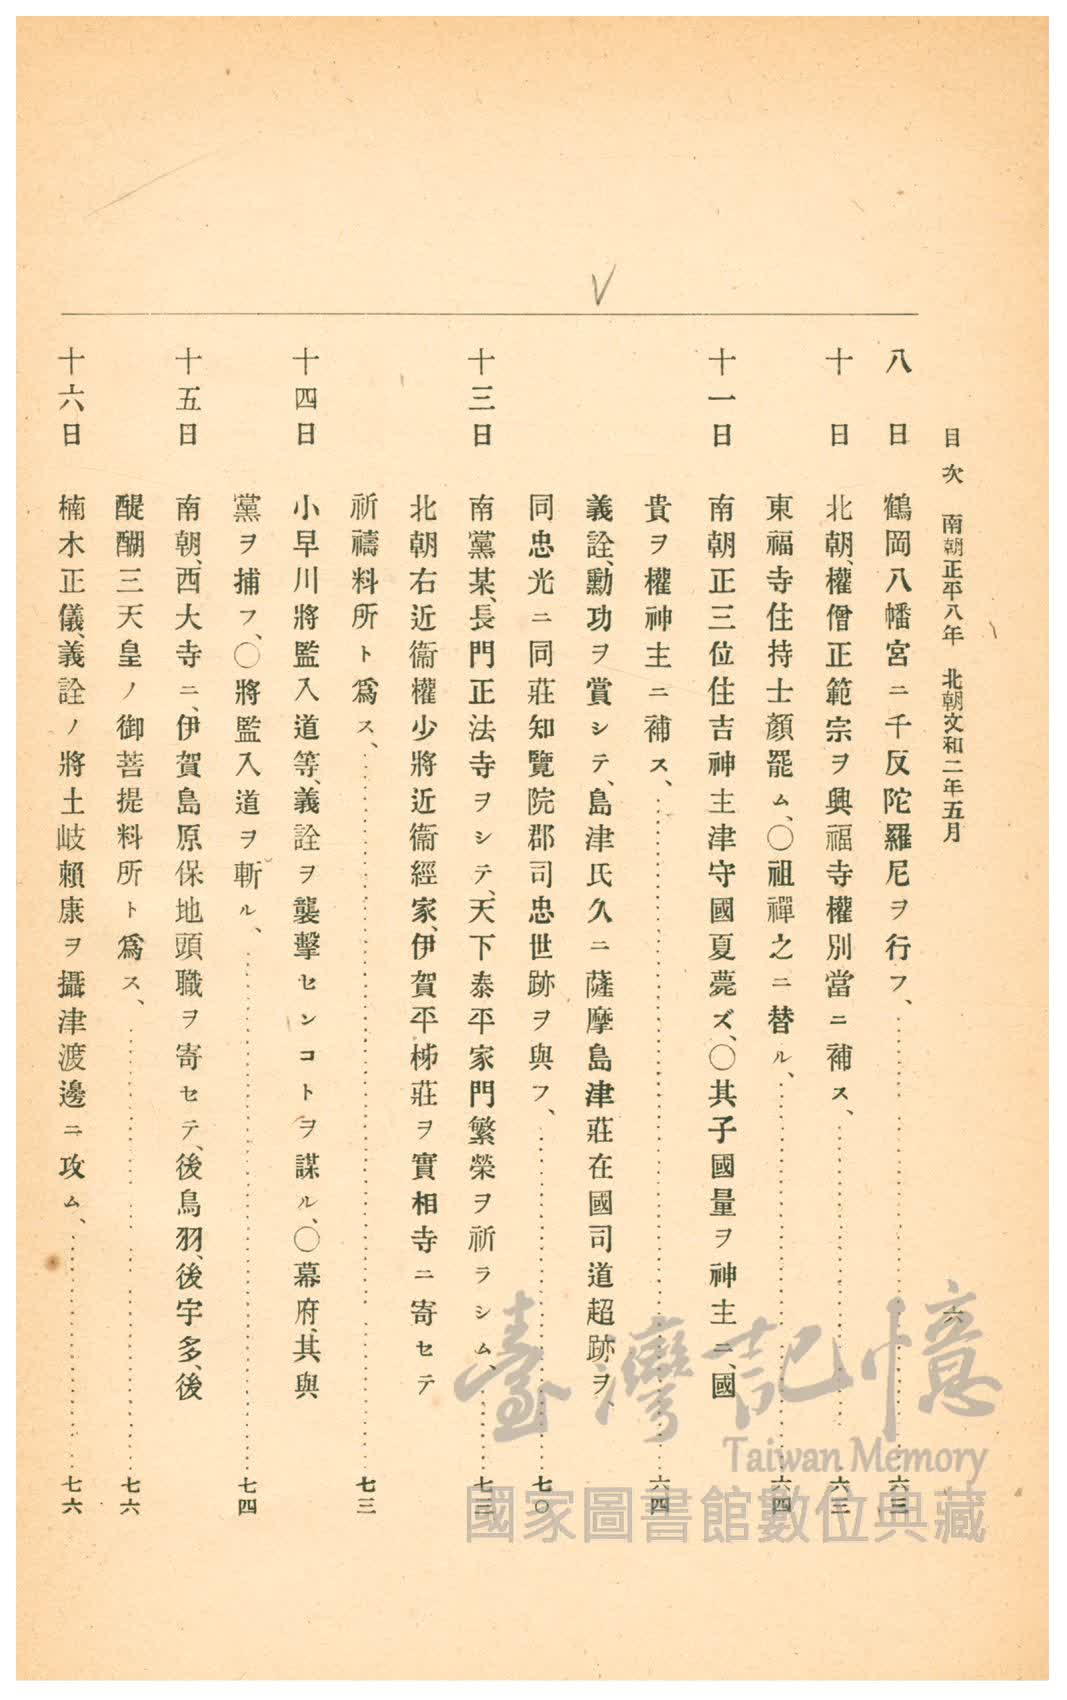 目次　南朝正平八年　北朝文和二年五月　六
八日　鶴岡八幡宮ニ千反陀羅尼ヲ行フ、…………六三
十日　北朝、權僧正範宗ヲ興福寺權別當ニ補ス、…………六三
東福寺住持士顏罷ム、○祖禪之ニ替ル、…………六四
十一日　南朝正三位住吉神主津守國夏薨ズ、○其子國量ヲ神主ニ、國
貴ヲ權神主ニ補ス、…………六四
義詮、勳功ヲ賞シテ、島津氏久ニ薩摩島津莊在國司道超跡ヲ、
同忠光ニ同莊知覽院郡司忠世跡ヲ與フ、…………七〇
十三日　南黨某、長門正法寺ヲシテ、天下泰平家門繁榮ヲ祈ラシム、…………七三
北朝右近衞權少將近衞經家、伊賀平柹莊ヲ實相寺ニ寄セテ
祈禱料所ト爲ス、…………七三
十四日　小早川將監入道等、義詮ヲ襲擊センコトヲ謀ル、○幕府、其與
黨ヲ捕フ、○將監入道ヲ斬ル、…………七四
十五日　南朝、西大寺ニ、伊賀島原保地頭職ヲ寄セテ、後鳥羽、後宇多、後
醍醐三天皇ノ御菩提料所ト爲ス、…………七六
十六日　楠木正儀、義詮ノ將土岐賴康ヲ攝津渡邊ニ攻ム、…………七六
臺灣記憶
Taiwan Memory
國家圖書館數位典藏